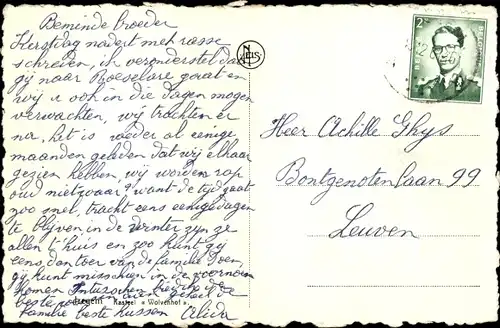 Beminde broeder
Kerstdag nadert met rasse
schreden, ik veronderstel dat
gij naar Roeselare gaat en
wij u ook in die dagen mogen
verwachten, wij trachten er
na, het is weder al eenige
maanden geleden dat wij elkaar
gezien hebben, wij worden rap
oud nietwaar? want de tijd gaat
zoo snel, tracht eens eenige dagen
te blijven in de winter zijn ze
allen t'huis en zoo kunt gij
eens dan toer van de familie doen,
gij kunt misschien in de voornoen
komen Intusschen
beste van geheel de
familie beste kussen Alida
Izegem Kasteel « Wolvenhof ».
NELS
2F
BELGIE
Heer Achille Ghys
Bontgenotenlaan 99
Leuven